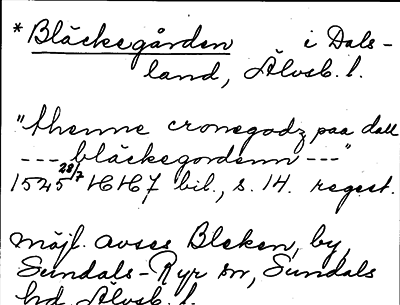 * Bläckegården i Dals-
land, Älvsb. l.
"thenne cronegodz paa dall
--- bläckegordenn ---"
1545 28/7 HH7 bil., s. 14. regest.
möjl. avses Bleken, by,
Sundals-Ryr sn, Sundals
hd, Älvsb. l.